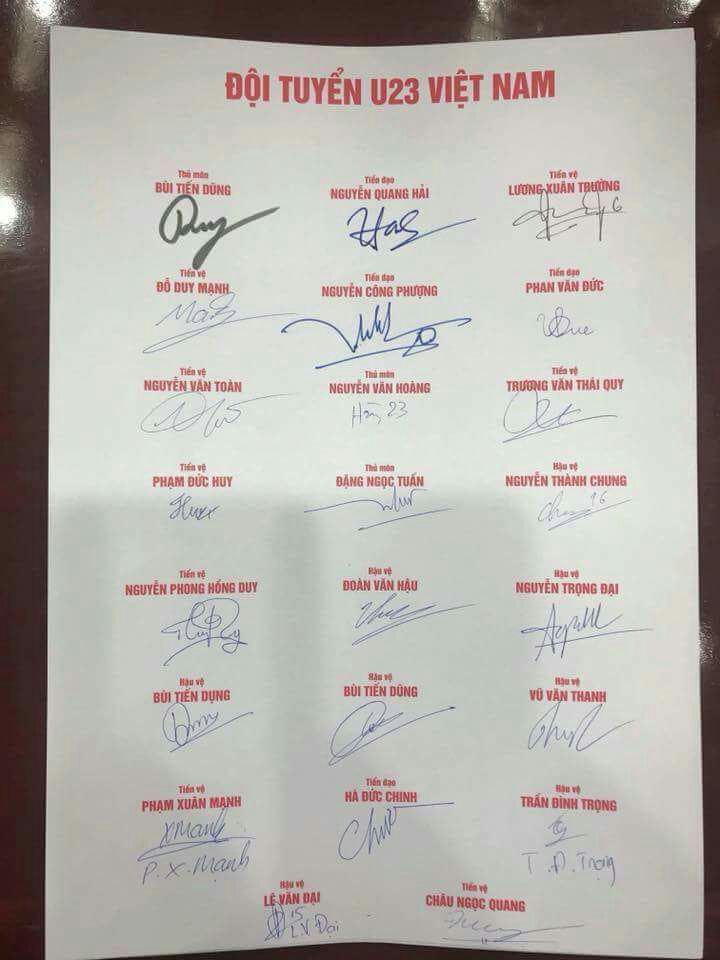 ĐỘI TUYỂN U23 VIỆT NAM
Thủ môn
BÙI TIẾN DŨNG
Tiền đạo
NGUYỄN QUANG HẢI
Tiền vệ
LƯƠNG XUÂN TRƯỜNG
6
Tiền vệ
ĐỖ DUY MẠNH
Tiền đạo
NGUYỄN CÔNG PHƯỢNG
Tiền đạo
PHAN VĂN ĐỨC
Tiền vệ
NGUYỄN VĂN TOÀN
Thủ môn
NGUYỄN VĂN HOÀNG
23
Tiền vệ
TRƯƠNG VĂN THÁI QUÝ
Tiền vệ
PHẠM ĐỨC HUY
Thủ môn
ĐẶNG NGỌC TUẤN
Hậu vệ
NGUYỄN THÀNH CHUNG
16
Tiền vệ
NGUYỄN PHONG HỒNG DUY
Hậu vệ
ĐOÀN VĂN HẬU
Hậu vệ
NGUYỄN TRỌNG ĐẠI
Hậu vệ
BÙI TIẾN DỤNG
Hậu vệ
BÙI TIẾN DŨNG
Hậu vệ
VŨ VĂN THANH
Tiền vệ
PHẠM XUÂN MẠNH
XManh
P.X.Mạnh
Tiền đạo
HÀ ĐỨC CHINH
Hậu vệ
TRẦN ĐÌNH TRỌNG
T.Đ.Trọng
Hậu vệ
LÊ VĂN ĐẠI
15
L.V Đại
Tiền vệ
CHÂU NGỌC QUANG